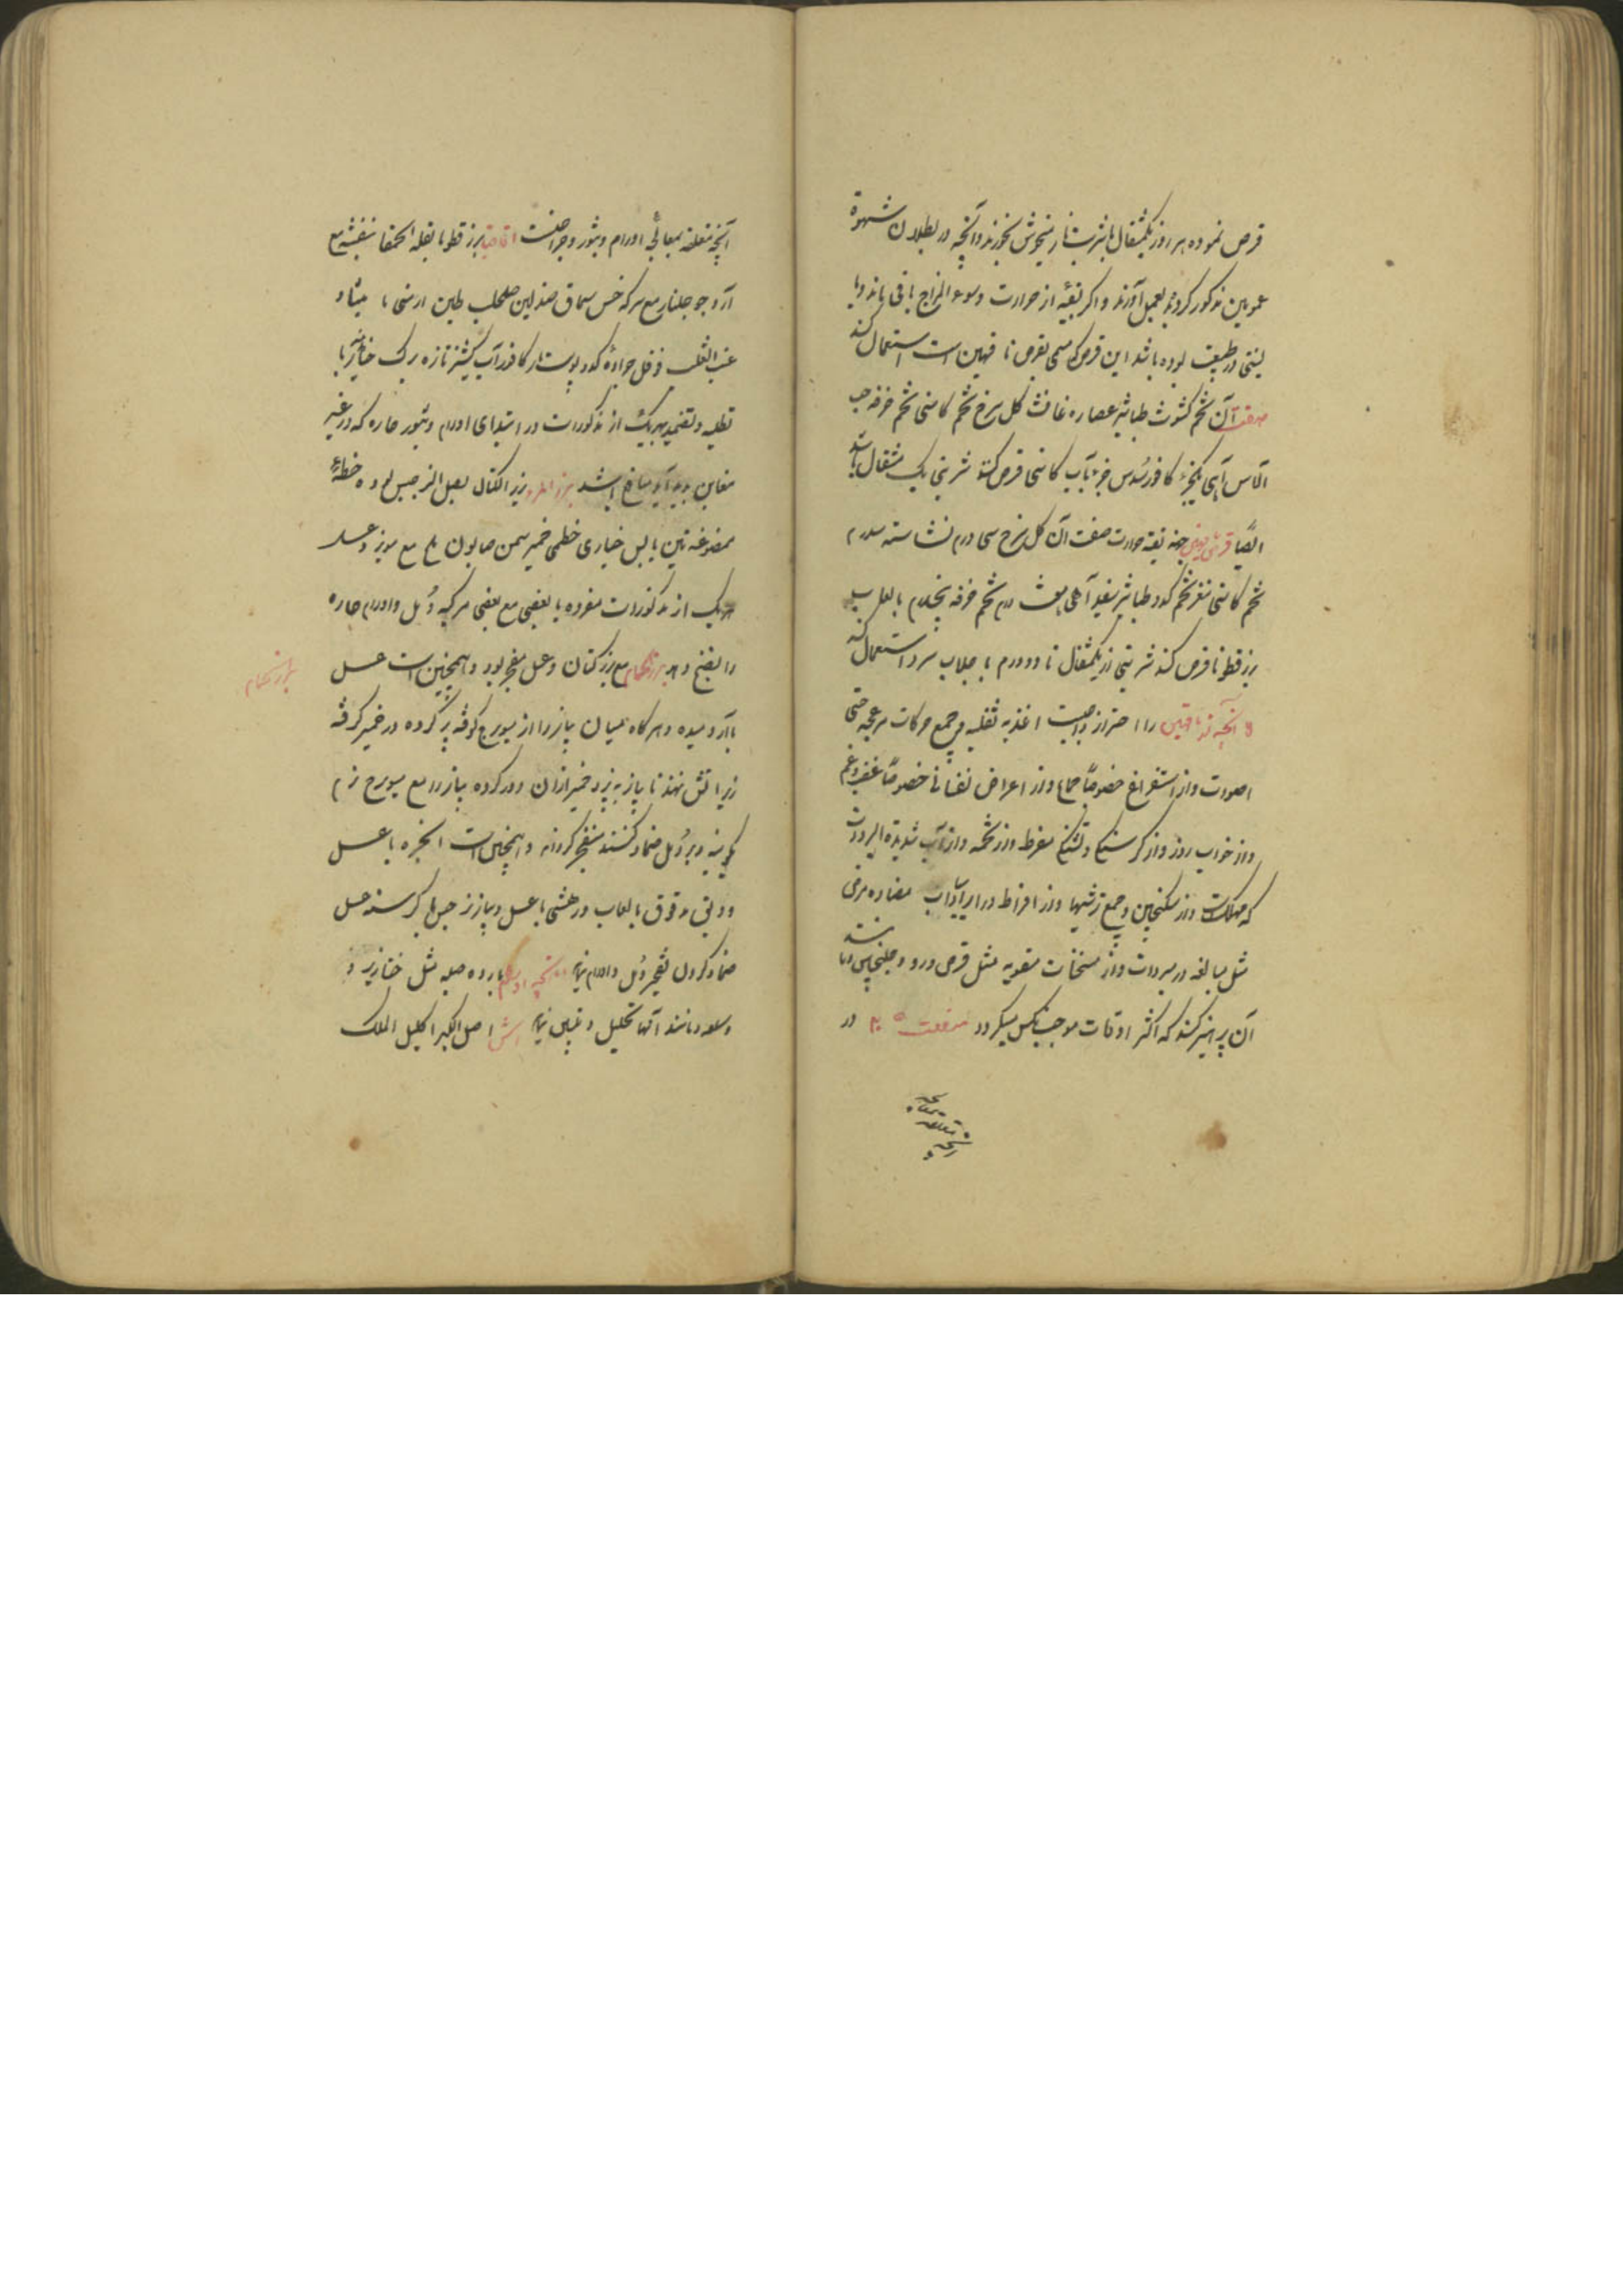 قرص نموده هر روز یکمثقال با شربت انار میخوش بخورند و آنچه در بطلان شهوة
عمومین مذکور کردند بعمل آورند و اکر بقیه از حرارت و سوء المزاج باقی باند و با
لینتی در طبیعت بوده باشد این قرص که مسمی بقرص ناقهین است استعمال کند
صفت آن تخم کشوث طباشیر عصاره غافث کل سرخ تخم کاسنی تخم خرفه حب
الآس آبی یکجزء کافور سدس جزء بآب کاسنی قرص کنند شربتی یک مثقال باشد
ایضا قرص جهة بقیه حرارت صفت آن کل سرخ سی درم نشاسته سه درم
تخم کاسنی مغز تخم کدو طباشیر سفید آملی درم تخم خرفه پنجدرم بالعاب
بزرقطونا قرص کند شربتی از یکمثقال تا دو درم با جلاب سرد استعمال کند
آنچه ناقهین را احتراز واجبست اغذیه ثقیله و جمیع حرکات مزعجه حتی
اصوات و از استفراغ خصوصا جماع و از اعراض نفسانی خصوصا غضب و غم
و از خواب روز و از کرسنکی و تشنکی مفرط و از تخمه و از آب شدیدة البرودت
که مهلکست و از سکنجبین و جمیع ترشیها و از افراط در ایراد آداب مضاده مرض
مثل مبالغه در مبردات و از مسخنات مقویه مثل قرص ورد و جلنجبین و مانند
آن پرهیز کند که اکثر اوقات موجب نکس میکردد در
آنچه متعلقه بمعالجه
آنچه متعلقه بمعالجه اورام و بثور و جراحتست اقاقیا بزرقطونا بقلة الحمقا بنفشه مع
آرد جو جلنار مع سرکه خس سماق صندلین طحلب طین ارمنی
عنب الثعلب فوفل جراده کدو پوست انار کافور آب کشنیز تازه برک
تطلیه و تضمید بهریک از مذکورات در ابتدای اورام و بثور حاره که در غیر
مغابن پدید آید نافع باشد بزر المرو بزر الکتان بصل النرجس
ممضوغه تین یابس خبازی خطمی خمیر سمن صابون ملح مع مویز و عسل
هریک از مذکورات مفرده یا بعضی مع بعضی مرکبه دمل و اورام حاره
را نضج دهد بزر مع بزر کتان و عسل مفجر بود و همچنین است عسل
با آرد میده و هرکاه میان پیاز را از میویزج کوفته پر کرده در خمیر کرفته
زیر آتش نهند تا پیاز بپزد و خمیر از آن دور کرده پیاز را مع میویزج نرم
بکوبند و بر دمل ضماد کنند منفجر کرداند و همچنین است انجره با عسل
و دبق مدقوق بالعاب و رهشی با عسل و پیاز نرجس با کرسنه عسل
ضماد کردن تفجیر دمل و اورام نماید آنچه اورام بارده صلبه مثل خنازیر و
و سلعه و مانند آنها تحلیل و تلیین نماید اشق اصل الکبر اکلیل الملک